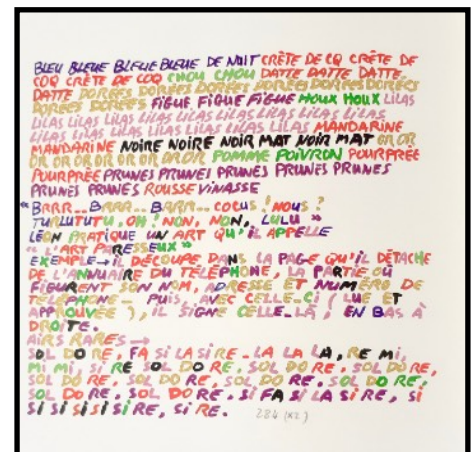 BLEU BLEUE BLEUE BLEUE DE NUIT CRÊTE DE CQ CRÊTE DE
COQ CRÊTE DE COQ CHOU CHOU DATTE DATTE DATTE
DATTE DORÉES DORÉES DORÉES DORÉES DORÉES DORÉES
DORÉES DORÉES FIGUE FIGUE FIGUE HOUX HOUX LILAS
LILAS LILAS LILAS LILAS LILAS LILAS LILAS LILAS
LILAS LILAS LILAS LILAS LILAS LILAS MANDARINE
MANDARINE NOIRE NOIRE NOIR MAT NOIR MAT OR OR
OR OR OR OR OR OR OR OR POMME POIVRON POURPRÉE
POURPRÉE PRUNES PRUNES PRUNES PRUNES PRUNES
PRUNES PRUNES ROUSSE VINASSE
"BRRR... BRRR... BRRR... COCUS! NOUS?
TURLUTUTU, OH! NON, NON, LULU »
LÉON PRATIQUE UN ART QU'IL APPELLE
« L'ART PARESSEUX »
EXEMPLE → IL DÉCOUPE DANS LA PAGE QU'IL DÉTACHE
DE L'ANNUAIRE DU TÉLÉPHONE, LA PARTIE OÙ
FIGURENT SON NOM, ADRESSE ET NUMÉRO DE
TÉLÉPHONE - PUIS, AVEC CELLE-CI (LUE ET
APPROUVÉE), IL SIGNE CELLE-LÀ, EN BAS À
DROITE.
AIRS RARES →
SOL DO RE, FA SI LA SI RE - LA LA LA, RE MI,
MI MI, SI RE SOL DO RE, SOL DO RE, SOL DO RE,
SOL DO RE, SOL DO RE, SOL DO RE, SOL DO RE,
SOL DO RE, SOL DO RE. SI FA SI LA SI RE, SI
SI SI SI SI SI RE, SI RE. 284 (X2)